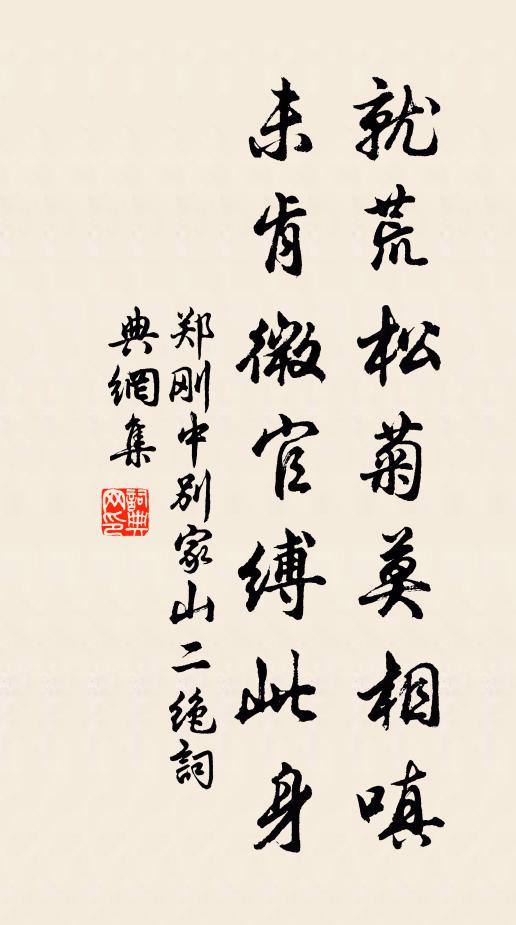 就荒松菊莫相嗔
未肯微官缚此身
郑刚中别家山二绝詞
典網集
詞典网印